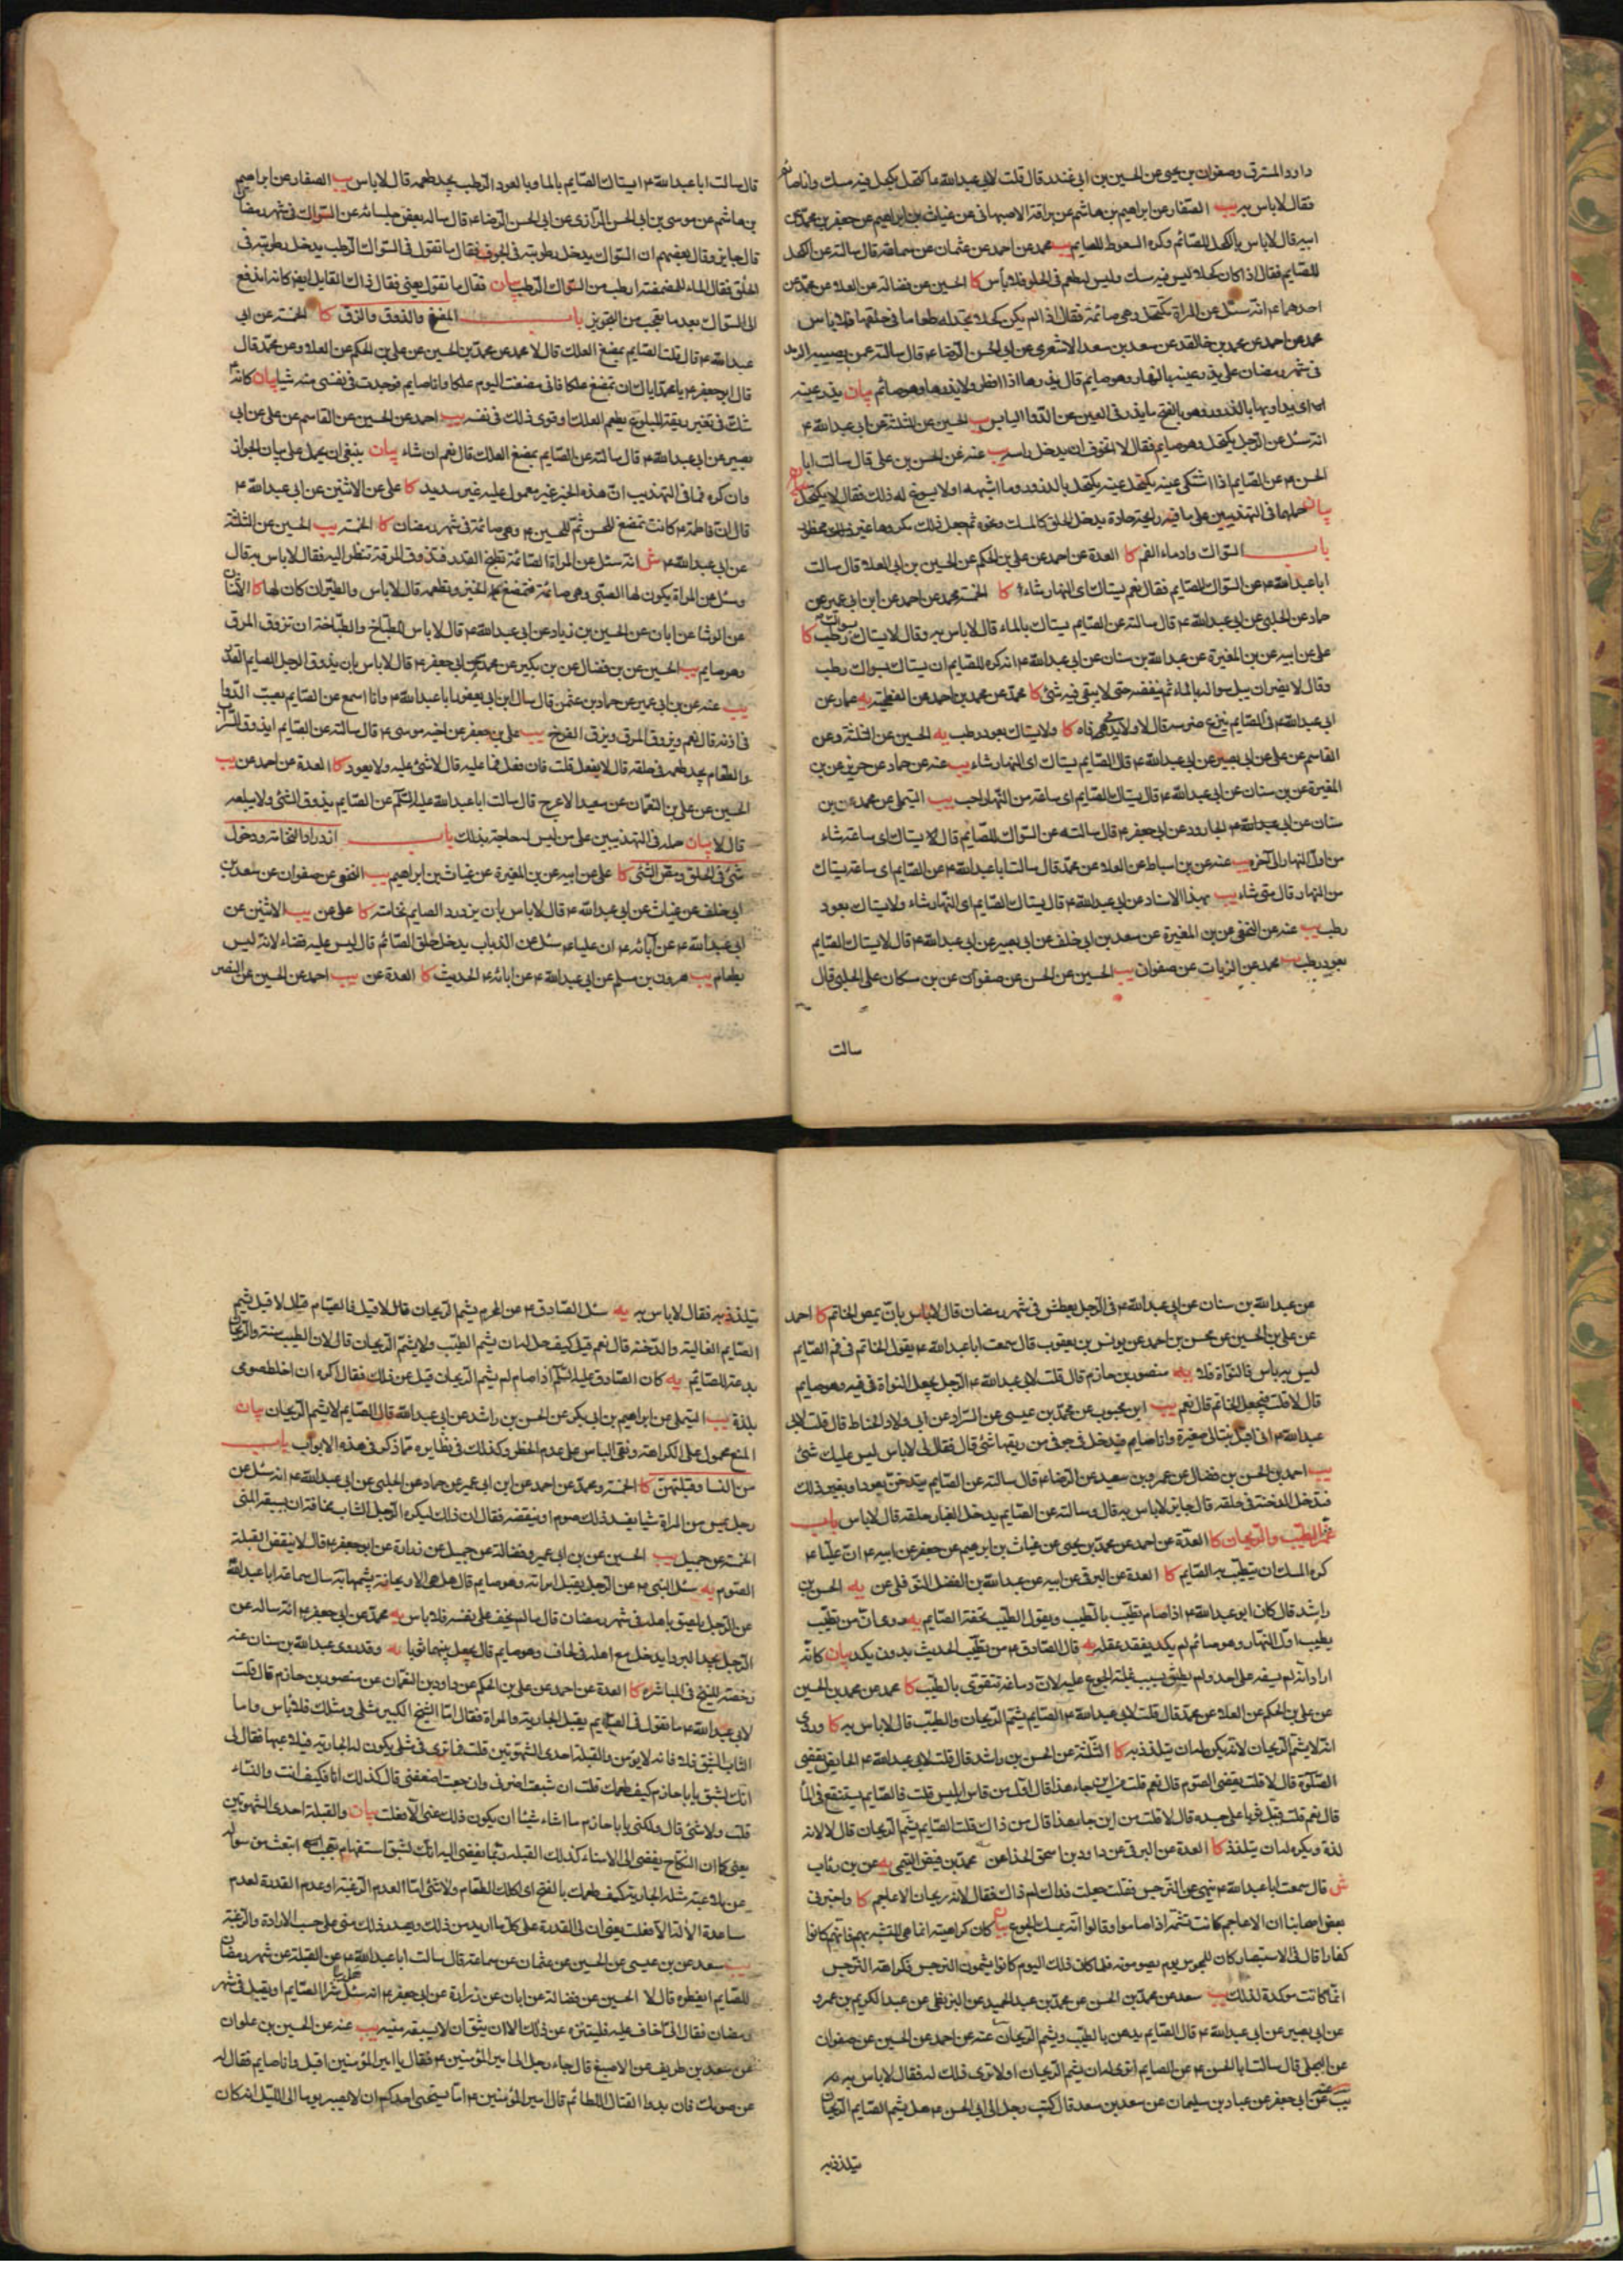 داود المسترق وصفوان بن يحيى عن الحسين بن ابى غندر قال قلت لابى عبدالله ع اكتحل بكحل فيه مسك وانا صائم
فقال لا باس به يب الصفار عن ابراهيم بن هاشم عن عن غياث بن ابراهيم عن جعفر بن محمد عن
ابيه قال لا باس بالكحل للصائم وكره السعوط للصايم يب محمد عن احمد عن عثمان عن سماعة قال سالته عن الكحل
للصايم فقال اذا كان كحلا ليس فيه مسك وليس له طعم فى الحلق فلا بأس كا الحسين عن فضالة عن العلا عن محمد عن
احدهما ع انه سئل عن المراة تكتحل وهى صائمة فقال اذا لم يكن كحلا تجد له طعما فى حلقها فلا باس
محمد عن احمد عن محمد بن خالد عن سعد بن سعد الاشعرى عن ابى الحسن الرضا ع قال سالته عمن يصيبه الرمد
فى شهر رمضان هل يذر عينه بالنهار وهو صايم قال يذرها اذا افطر ولا يذرها وهو صائم بيان يذر عينه
اى يداويها بالذرور وهو بالفتح ما يذر فى العين من الدوا اليابس يب الحسين عن الثلثة عن ابى عبدالله ع
انه سئل عن الرجل يكتحل وهو صايم فقال لا اتخوف ان يدخل راسه يب عنه عن الحسن بن على قال سالت ابا
الحسن ع عن الصايم اذا اشتكى عينه يكتحل بالذرور وما اشبهه او لا يسوغ له ذلك فقال لا يكتحل
بيان حملها فى التهذيبين على ما فيه رايحة حادة يدخل الحلق كالمسك ونحوه ثم جعل ذلك مكروها غير محظور
باب السواك وادماء الفم كا العدة عن احمد عن على بن الحكم عن الحسين بن ابى العلا قال سالت
ابا عبدالله ع عن السواك للصايم فقال نعم يستاك اى النهار شاء كا الخمسة محمد عن احمد عن ابن ابى عمير عن
حماد عن الحلبى عن ابى عبدالله ع قال سالته عن الصايم يستاك بالماء قال لا باس به وقال لا يستاك بسواك رطب كا
على عن ابيه عن بن المغيرة عن عبدالله بن سنان عن ابى عبدالله ع انه كره للصايم ان يستاك بسواك رطب
وقال لا يضر ان يبل سواكه بالماء ثم ينفضه حتى لا يبقى فيه شئ كا محمد عن محمد بن احمد عن الفطحية يه عمار عن
ابى عبدالله ع فى الصايم ينزع ضرسه قال لا ولا يدمى فاه كا ولا يستاك بعود رطب يه الحسين عن الثلثة وعن
القاسم عن على عن ابى بصير عن ابى عبدالله ع قال الصايم يستاك اى النهار شاء يب عنه عن حماد عن حريز عن بن
المغيرة عن بن سنان عن ابى عبدالله ع قال يستاك الصايم اى ساعة من النهار احب يب التيملى عن محمد عن بن
سنان عن ابى الجارود عن ابى جعفر ع قال سالته عن السواك للصايم قال يستاك اى ساعة شاء
من اول النهار الى آخره يب عنه عن بن اسباط عن العلا عن محمد قال سالت ابا عبدالله ع عن الصايم اى ساعة يستاك
من النهار قال متى شاء يب بهذا الاسناد عن ابى عبدالله ع قال يستاك الصايم اى النهار شاء ولا يستاك بعود
رطب يب عنه عن النخعى عن بن المغيرة عن سعد بن ابى خلف عن ابى بصير عن ابى عبدالله ع قال لا يستاك الصايم
بعود رطب يب محمد عن الزيات عن صفوان يب الحسين عن الحسن عن صفوان عن بن مسكان عن الحلبى قال
سالت
قال سالت ابا عبدالله ع ايستاك الصايم بالماء وبالعود الرطب يجد طعمه قال لا باس يب الصفار عن ابراهيم
بن هاشم عن موسى بن ابى الحسن الرازى عن ابى الحسن الرضا ع قال ساله بعض جلسائه عن السواك فى شهر رمضان
قال جايز وقال بعضهم ان السواك يدخل رطوبته فى الجوف فقال ما تقول فى السواك الرطب يدخل رطوبته فى
الحلق فقال الماء للمضمضة ارطب من السواك الرطب بيان فقال ما تقول يعنى فقال ذاك القايل ايضا كانه اندفع
الى السواك بعد ما تعجب من التجويز باب المضغ والذوق والزق كا الخمسة عن ابى
عبدالله ع قال قلت الصايم يمضغ العلك قال لا محمد عن محمد بن الحسين عن على بن الحكم عن العلا وعن محمد قال
قال ابو جعفر ع يا محمد اياك ان تمضغ علكا فانى مضغت اليوم علكا وانا صايم فوجدت فى نفسى منه شيا بيان كانه
شك فى تغير ريقه المبلوع بطعم العلك وقوى ذلك فى نفسه يب احمد عن الحسين عن القاسم عن على عن ابى
بصير عن ابى عبدالله ع قال سالته عن الصايم يمضغ العلك قال نعم ان شاء بيان ينبغى ان يحمل على بيان الجواز
وان كره فما فى التهذيب ان هذا الخبر غير معمول عليه غير سديد كا على عن الاثنين عن ابى عبدالله ع
قال ان فاطمة ع كانت تمضغ للحسن ثم للحسين ع وهى صائمة فى شهر رمضان كا الخمسة يب الحسين عن الثلثة
عن ابى عبدالله ع ش انه سئل عن المراة الصائمة تطبخ القدر فتذوق المرقة تنظر اليه فقال لا باس به قال
وسئل عن المراة يكون لها الصبى وهى صائمة فتمضغ له الخبز وتطعمه قال لا باس والطير ان كان لها كا الاثنان
عن الوشا عن ابان عن الحسين بن زياد عن ابى عبدالله ع قال لا باس للطباخ والطباخة ان تذوق المرق
وهو صايم يب الحسين عن بن فضال عن بن بكير عن محمد عن ابى جعفر ع قال لا باس بان يذوق الرجل الصايم القدر
يب عنه عن بن ابى عمير عن حماد بن عثمن قال سال ابن ابى يعفور ابا عبدالله ع وانا اسمع عن الصايم يصب الدوا
فى اذنه قال نعم ويذوق المرق ويزق الفرخ يب على بن جعفر عن اخيه موسى ع قال سالته عن الصايم ايذوق الشراب
والطعام يجد طعمه فى حلقه قال لا يفعل قلت فان فعل فما عليه قال لا شئ عليه ولا يعود كا العدة عن احمد عن يب
الحسين عن على بن النعمان عن سعيد الاعرج قال سالت ابا عبدالله عليه السلم عن الصايم يذوق الشئ ولا يبلعه
قال لا بيان حمله فى التهذيبين على من ليس له حاجة بذلك باب ازدراد النخامة ودخول
شئ فى الحلق ومص الشئ كا على عن ابيه عن بن المغيرة عن غياث بن ابراهيم يب النخعى عن صفوان عن سعد بن
ابى خلف عن غياث عن ابى عبدالله ع قال لا باس بان يزدرد الصايم نخامته كا على عن يب الاثنين عن
ابى عبدالله ع عن آبائه ع ان عليا ع سئل عن الذباب يدخل حلق الصائم قال ليس عليه قضاء لانه ليس
بطعام يب هرون بن مسلم عن ابى عبدالله ع عن ابائه ع الحديث كا العدة عن يب احمد عن الحسين عن النضر
عن عبدالله بن سنان عن ابى عبدالله ع فى الرجل يعطش فى شهر رمضان قال لا باس بان يمص الخاتم كا احمد
عن على بن الحسين عن محسن بن احمد عن يونس بن يعقوب قال سمعت ابا عبدالله ع يقول الخاتم فى فم الصايم
ليس به باس فاما النواة فلا يه منصور بن حازم قال قلت لابى عبدالله ع الرجل يجعل النواة فى فيه وهو صايم
قال لا قلت فيجعل الخاتم قال نعم يب ابن محبوب عن محمد بن عيسى عن السراد عن ابى ولاد الحناط قال قلت لابى
عبدالله ع انى اقبل بنتا لى صغيرة وانا صايم فيدخل فى جوفى من ريقها شئ قال فقال لى لا باس ليس عليك شئ
يب احمد بن الحسن بن فضال عن عمرو بن سعيد عن الرضا ع قال سالته عن الصايم يتدخن بعود او بغير ذلك
فتدخل الدخنة فى حلقه قال جايز لا باس به قال وسالته عن الصايم يدخل الغبار حلقه قال لا باس باب
شم الطيب والريحان كا العدة عن احمد عن محمد بن يحيى عن غياث بن ابراهيم عن جعفر عن ابيه ع ان عليا ع
كره المسك ان يتطيب به الصايم كا العدة عن البرقى عن ابيه عن عبدالله بن الفضل النوفلى عن يه الحسن بن
راشد قال كان ابو عبدالله ع اذا صام تطيب بالطيب ويقول الطيب تحفة الصايم يه وروى ان من تطيب
بطيب اول النهار وهو صائم لم يكد يفقد عقله يه قال الصادق ع من تطيب الحديث بدون يكد بيان كانه
اراد انه لم يسفه على احد ولم يطش بسبب غلبة الجوع عليه لان دماغه تتقوى بالطيب كا محمد عن محمد بن الحسين
عن على بن الحكم عن العلا عن محمد قال قلت لابى عبدالله ع الصايم يشم الريحان والطيب قال لا باس به كا وروى
انه لا يشم الريحان لانه يكره له ان يتلذذ به كا الثلثة عن الحسن بن راشد قال قلت لابى عبدالله ع الحايض تقضى
الصلوة قال لا قلت تقضى الصوم قال نعم قلت من اين جاء هذا قال اول من قاس ابليس قلت فالصايم يستنقع فى الما
قال نعم قلت فيبل ثوبا على جسده قال لا قلت من اين جا هذا قال من ذاك قلت الصايم يشم الريحان قال لا لانه
لذة ويكره له ان يتلذذ كا العدة عن البرقى عن داود بن اسحق الحذا عن محمد بن فيض التيمى يه عن بن رئاب
ش قال سمعت ابا عبدالله ع ينهى عن النرجس فقلت جعلت فداك لم ذاك فقال لانه ريحان الاعاجم كا واخبرنى
بعض اصحابنا ان الاعاجم كانت تشمه اذا صاموا وقالوا انه يمسك الجوع بيان كان كراهيته انما هى للتشبه بهم فانهم كانوا
كفارا قال فى الاستبصار كان للمجوس يوم يصومونه فلما كان ذلك اليوم كانوا يشمون النرجس فكراهة النرجس
انما كانت مؤكدة لذلك يب سعد عن محمد بن الحسن عن محمد بن عبد الحميد عن البزنطى عن عبد الكريم بن عمرو
عن ابى بصير عن ابى عبدالله ع قال الصايم يدهن بالطيب ويشم الريحان عنه عن احمد عن الحسين عن صفوان
عن البجلى قال سالت ابا الحسن ع عن الصايم اترى له ان يشم الريحان او لا ترى ذلك له فقال لا باس به
يب عنه عن ابى جعفر عن عباد بن سليمان عن سعد بن سعد قال كتب رجل الى ابى الحسن ع هل يشم الصايم الريحان
يتلذذ به
يتلذذ به فقال لا باس به يه سئل الصادق ع عن المحرم يشم الريحان قال لا قيل فالصايم قال لا قيل يشم
الصايم الغالية والدخنة قال نعم قيل كيف حل له ان يشم الطيب ولا يشم الريحان قال لان الطيب سنة والريحان
بدعة للصائم يه كان الصادق عليه السلم اذا صام لم يشم الريحان قيل عن ذلك فقال اكره ان اخلط صومى
بلذة يب التيملى عن ابراهيم بن ابى بكر عن الحسن بن راشد عن ابى عبدالله قال الصايم لا يشم الريحان بيان
المنع محمول على الكراهة ونفى الباس على عدم الحظر وكذلك فى نظايره مما ذكر فى هذه الابواب باب
مس النسا وقبلتهن كا الخمسة ومحمد عن احمد عن ابن ابى عمير عن حماد عن الحلبى عن ابى عبدالله ع انه سئل عن
رجل يمس من المراة شيا ايفسد ذلك صومه او ينقضه فقال ان ذلك ليكره للرجل الشاب مخافة ان يسبقه المنى
الخمسة عن جميل يب الحسين عن بن ابى عمير وفضالة عن جميل عن زرارة عن ابى جعفر ع قال لا ينقض القبلة
الصوم يه سئل النبى ص عن الرجل يقبل امراته وهو صايم قال هل هى الا ريحانة يشمها يه سال سماعة ابا عبدالله
عن الرجل يلصق باهله فى شهر رمضان قال ما لم يخف على نفسه فلا باس يه محمد عن ابى جعفر ع انه ساله عن
الرجل يجد البرد ايدخل مع اهله فى لحاف وهو صايم قال يجعل بينهما ثوبا يه وقد روى عبدالله بن سنان عنه
رخصة للشيخ فى المباشرة كا العدة عن احمد عن على بن الحكم عن داود بن النعمان عن منصور بن حازم قال قلت
لابى عبدالله ع ما تقول فى الصايم يقبل الجارية والمراة فقال اما الشيخ الكبير مثلى ومثلك فلا باس واما
الشاب الشبق فلا فانه لا يؤمن والقبلة احدى الشهوتين قلت فما ترى فى مثلى يكون له الجارية فيلاعبها فقال لى
انك لشبق يا با حازم كيف طعمك قلت ان شبعت اضرنى وان جعت اضعفنى قال كذلك انا فكيف انت والنساء
قلت ولا شئ قال ولكنى يا با حازم ما اشاء شيئا ان يكون ذلك منى الا فعلت بيان والقبلة احدى الشهوتين
يعنى كما ان النكاح يفضى الى الامناء كذلك القبلة ربما يفضى اليه انك لشبق استفهام انبعث من سواله
عن ملاعبة مثله الجارية كيف طعمك بالفتح اى اكلك الطعام ولا شئ اما لعدم الرغبة او عدم القدرة لعدم
مساعدة الالة الا فعلت يعنى ان لى القدرة على كل ما اريد من ذلك ويصدر ذلك منى على حسب الارادة والرغبة
يب سعد عن بن عيسى عن الحسين عن عثمان عن سماعة قال سالت ابا عبدالله ع عن القبلة عن شهر رمضان
للصايم ايفطره قال لا الحسين عن فضالة عن ابان عن زرارة عن ابى جعفر ع انه سئل هل يباشر الصايم او يقبل فى شهر
رمضان فقال انى اخاف عليه فليتنزه عن ذلك الا ان يثق ان لا يسبقه منيه يب عنه عن الحسين بن علوان
عن سعد بن طريف عن الاصبغ قال جاء رجل الى امير المؤمنين ع فقال يا امير المؤمنين اقبل وانا صايم فقال له
عف صومك فان بدو القتال اللطام ثم قال امير المؤمنين ع اما يستحيى احدكم ان لا يصبر يوما الى الليل انه كان